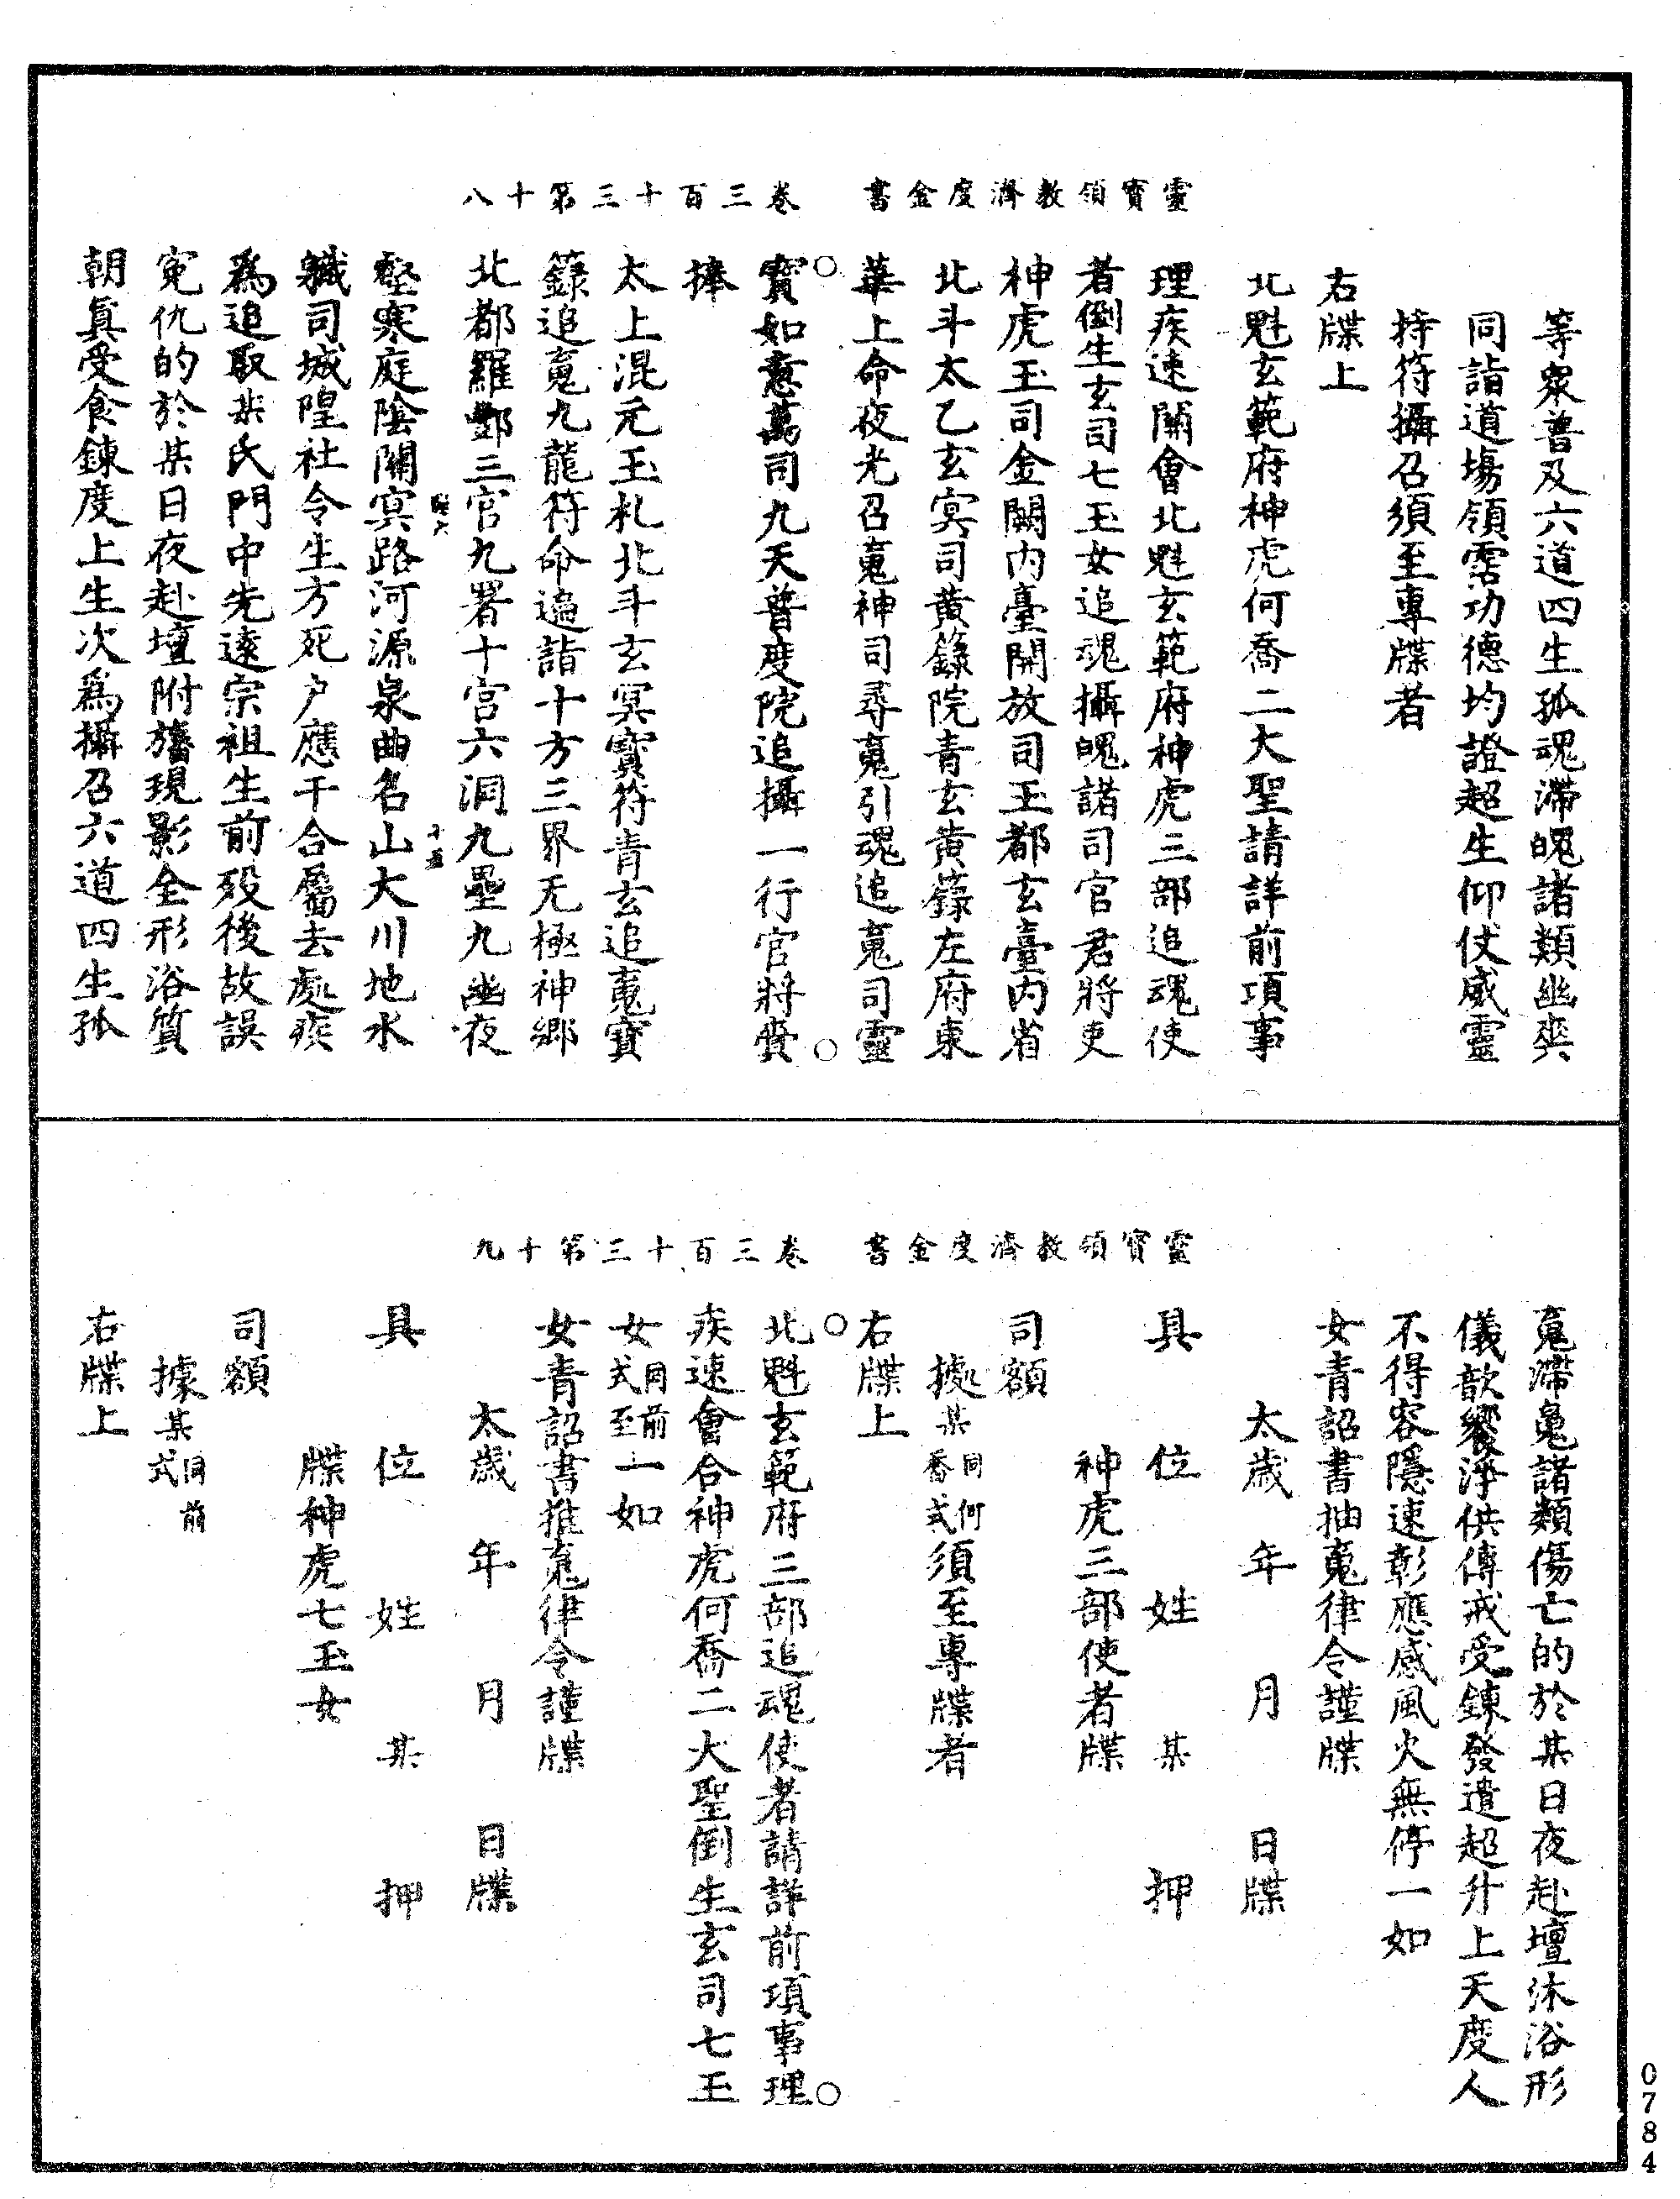 靈寶領教濟度金書 卷三百十三第十八
等衆普及六道四生孤魂滯魄諸類幽爽
同詣道場領霑功德均證超生仰仗威靈
持符攝召須至專牒者
右牒上
北魁玄範府神虎何喬二大聖請詳前項事
理疾速關會北魁玄範府神虎三部追魂使
者倒生玄司七玉女追魂攝魄諸司官君將吏
神虎玉司金闕內臺開放司玉都玄臺內省
北斗太乙玄冥司黃籙院青玄黃籙左府東
華上命夜光召䰟神司尋䰟引魂追䰟司靈
寶如意萬司九天普度院追攝一行官將賫
捧
太上混元玉札北斗玄冥寶符青玄追䰟寶
籙追䰟九龍符命遍詣十方三界无極神鄉
北都羅酆三官九署十宫六洞九壘九幽夜
壑寒庭陰關冥路河源泉曲名山大川地水
嶽司城隍社令生方死户應干合屬去處疾
爲追取某氏門中先遠宗祖生前殁後故誤
寃仇的於某日夜赴壇附旛現影全形浴質
朝眞受食鍊度上生次爲攝召六道四生孤
十五
靈寶領教濟度金書 卷三百十三第十九
䰟滯䰟諸類傷亡的於某日夜赴壇沐浴形
儀歆饗淨供傳戒受鍊發遣超升上天度人
不得容隱速彰應感風火無停一如
女青詔書抽䰟律令謹牒
太歲 年 月 日牒
具 位 姓 某 押
神虎三部使者牒
司額
據某同何喬式須至專牒者
右牒上
北魁玄範府三部追魂使者請詳前項事理
疾速會合神虎何喬二大聖倒生玄司七玉
女同前式至一如
女青詔書推䰟律令謹牒
太歲 年 月 日牒
具 位 姓 某 押
牒神虎七玉女
司額
據某同前式
右牒上
0784